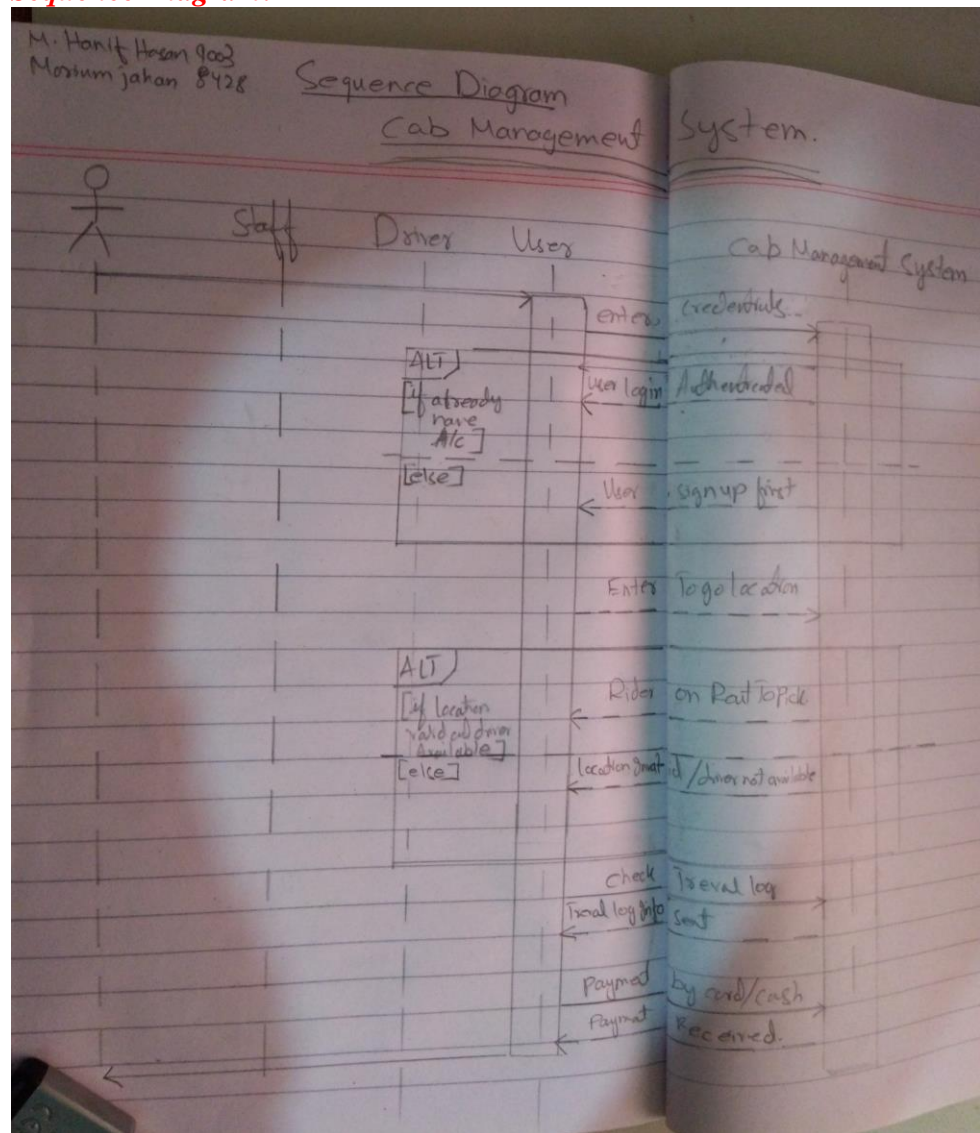 Sequence Diagram:
M. Hanif Hasan 9003
Marium jahan 8428
Sequence Diagram
Cab Management System.
Staff
Driver
User
Cab Management System
enter credentials
ALT
[if already
have
A/c]
User login Authenticated
[else]
User signup first
Enter To go location
ALT
[if location
valid and driver
Available]
Rider on Rout To Pick
[else]
location invalid / driver not available
Check Treval log
Treval log Info sent
Payment by card/cash
Payment Received.